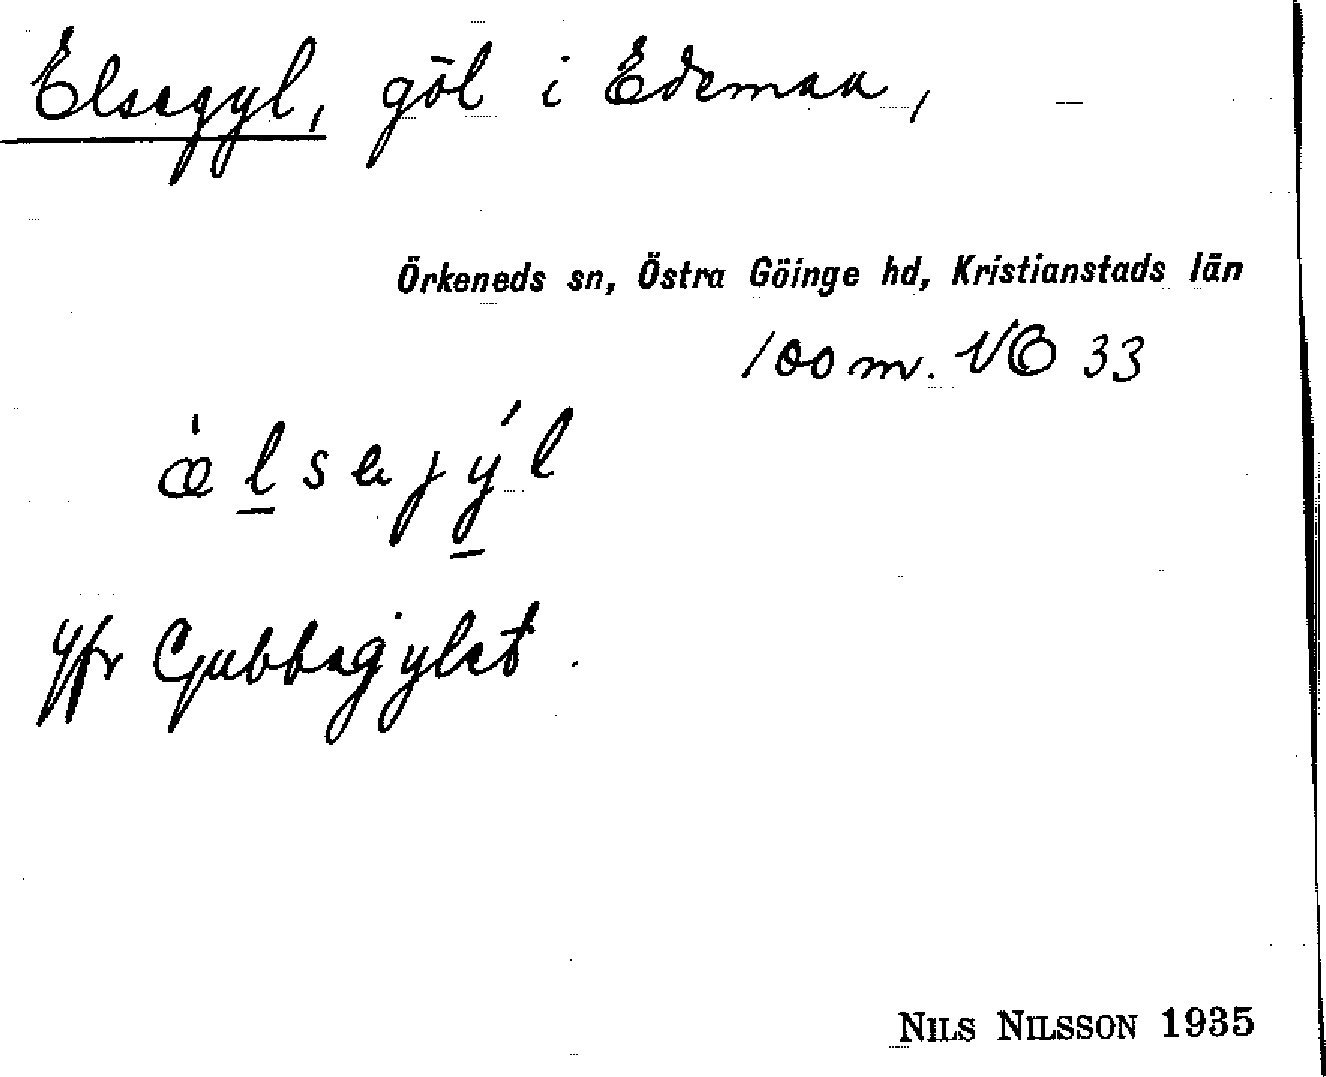 Elsagyl, göl i Edemaa,
Örkeneds sn, Östra Göinge hd, Kristianstads län
100 m. NO 33
Jfr Gubbagylet.
NILS NILSSON 1935